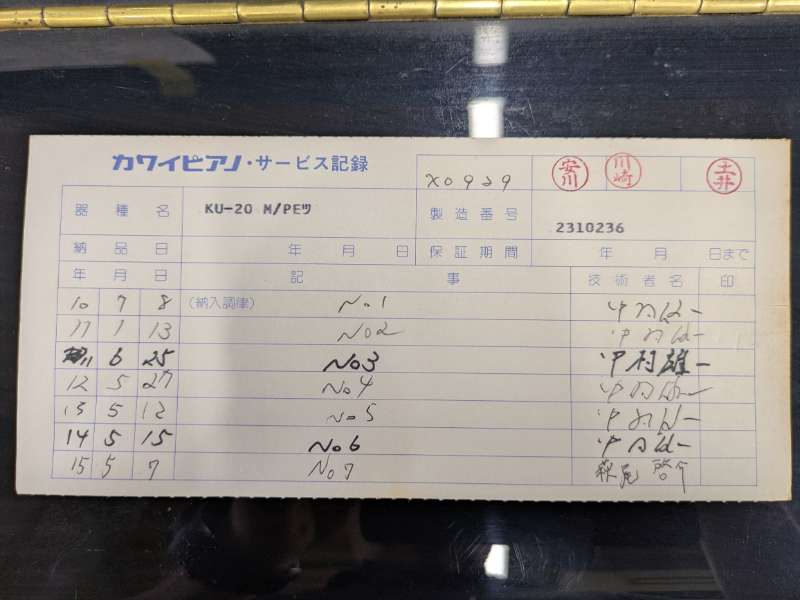 カワイピアノ・サービス記録
X0929 安川 川崎 土井
器種名 KU-20 M/PEツ 製造番号 2310236
納品日 年 月 日 保証期間 年 月 日まで
年 月 日 記事 技術者名 印
10 7 8 (納入調律) No.1
11 1 13 No2
11 6 25 No3 中村雄一
12 5 27 No4
13 5 12 No5
14 5 15 No6
15 5 7 No7 萩尾 啓介